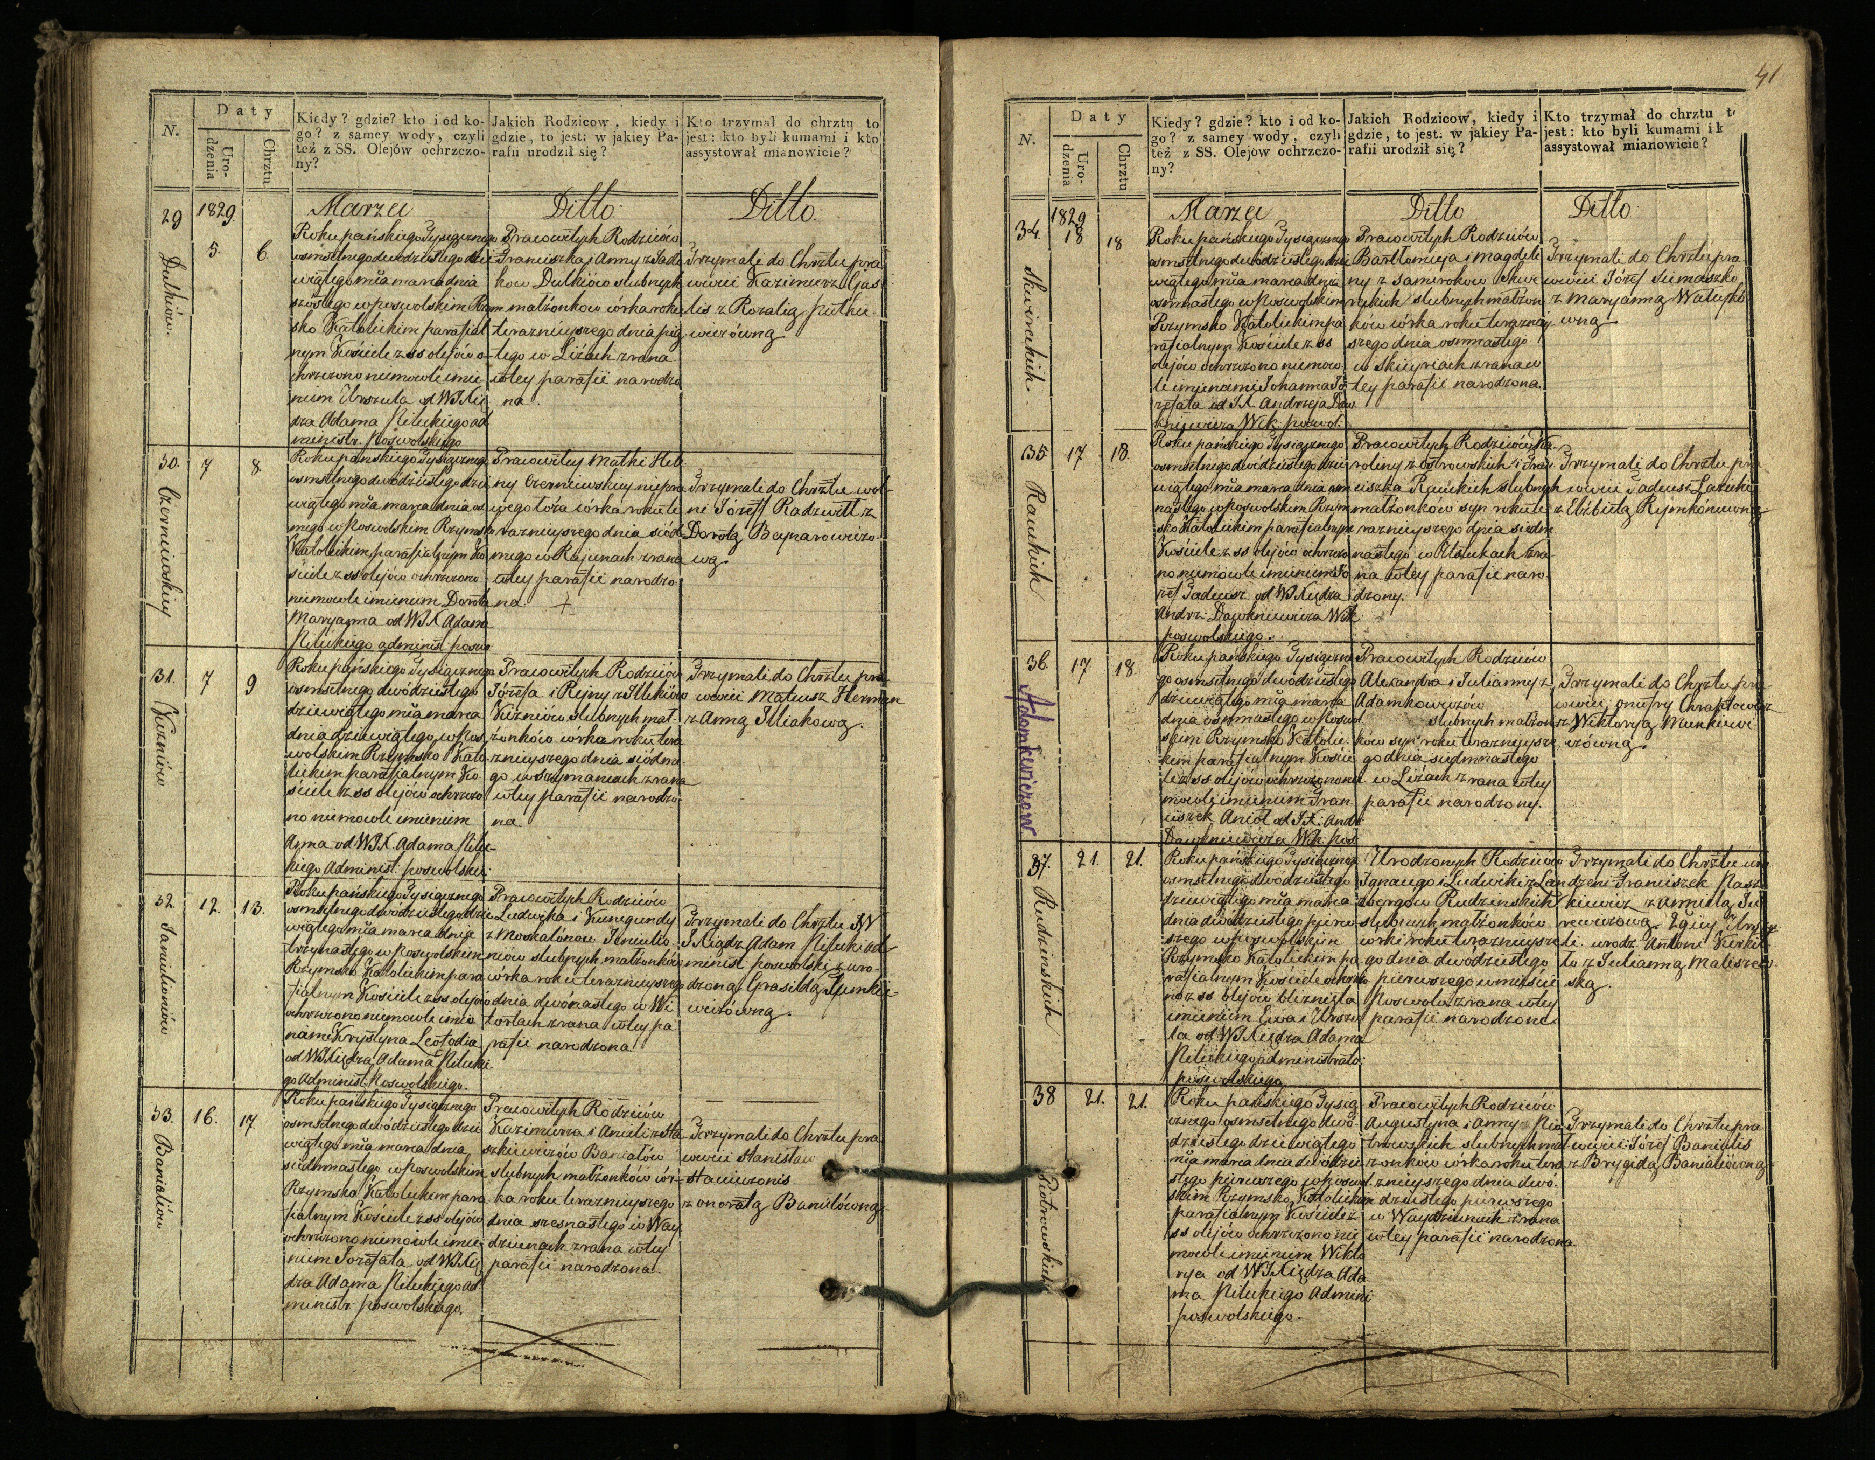 N.
Daty
Uro-
dzenia
Chrztu
Kiedy? gdzie? kto i od ko-
go? z samey wody, czyli
też z SS. Olejów ochrzczo-
ny?
Jakich Rodzicow, kiedy i
gdzie, to jest: w jakiey Pa-
rafii urodził się?
Kto trzymał do chrztu to
jest: kto byli kumami i kto
assystował mianowicie?
1829
Marca
Ditto
Ditto
29
Dulków
5.
6.
Roku pańskiego Tysiącznego
osmsetnego dwódziestego dzie
wiątego mca marca dnia
szóstego w poswolskim Rzym
sko Katolickim parafial
nym Kościele z ss olejów o-
chrzczono niemowle imie
niem Urszula od WJXię
dza Adama Pileckiego ad
ministr. Poswolskiego
Pracowitych Rodziców
Franciszka i Anny z
ków Dulków slubnych
małżonków córka roku
teraznieyszego dnia pią-
tego w Liżach zrana
wtey parafii narodzo
na.
Trzymali do Chrztu pra
cowici Kazimierz
z Rozalią
30.
Czerniewskiey
7
8
Roku pańskiego Tysiącznego
osmsetnego dwódziestego dzie
wiątego mca marca dnia os
mego w Poswolskim Rzymsko
Katolickim parafialnym Ko
ściele z ss olejów ochrzczono
niemowle imieniem Dorota
Maryanna od WJX Adama
Pileckiego administ. posw
Pracowitey Matki Hele
ny Czerniewskiey niepra
wego łoża córka roku te
raznieyszego dnia siód
mego w Rajunach zrana
wtey parafii narodzo
na +
Trzymali do Chrztu wol
ni Józeff Radziwill z
Dorotą Beynarowiczo
wą.
31.
Kuzniów
7
9
Roku pańskiego Tysiącznego
osmsetnego dwódziestego
dziewiątego mca marca
dnia dziewiątego w Pos
wolskim Rzymsko Kato
lickim parafialnym Ko
ściele z ss olejów ochrzczo
no niemowle imieniem
Anna od WJX. Adama Pilec-
kiego Administ. poswolskie.
Pracowitych Rodziców
Józefa i Reginy z Illików
Kuzniów slubnych mał
żonków córka roku tera
znieyszego dnia siódme
go w szymancach zrana
wtey parafii narodzo
na.
Trzymali do Chrztu pra
cowici Mateusz Herman
z Anną Illiakową.
32
Janiulioniów
12.
13.
Roku pańskiego Tysiącznego
osmsetnego dwódziestego dzie
wiątego mca marca dnia
trzynastego w Poswolskim
Rzymsko Katolickim para
fialnym Kościele z ss olejów
ochrzczono niemowle imio
nami Krystyna Leokadia
od WJXiędza Adama Pilecki
go Administ. Poswolskiego.
Pracowitych Rodziców
Ludwika i Kunegundy
z Moskalónow
niów slubnych małżonków
córka roku teraznieyszego
dnia dwónastego w Wi
tortach zrana wtey pa
rafii narodzona
Trzymali do Chrztu JW
JXiądz Adam Pilecki ad
minist. poswolski z uro-
dzoną Grasildą
wiczówną.
33.
Banialów
16.
17
Roku pańskiego Tysiącznego
osmsetnego dwódziestego dzie
wiątego mca marca dnia
siedmnastego w poswolskim
Rzymsko Katolickim para
fialnym Kościele z ss olejów
ochrzczono niemowle imie
niem Jozefata od WJXię
dza Adama Pileckiego ad
ministr. poswolskiego.
Pracowitych Rodziców
Kazimierza i Anieli z Sta
szkiewiczów Banialów
slubnych małżonków cór-
ka roku teraznieyszego
dnia szesnastego w Way
dziunach zrana wtey
parafii narodzona
Trzymali do Chrztu pra
cowici Stanisław
z onoratą Banilówną
41
N.
Daty
Uro-
dzenia
Chrztu
Kiedy? gdzie? kto i od ko-
go? z samey wody, czyli
też z SS. Olejów ochrzczo-
ny?
Jakich Rodzicow, kiedy i
gdzie, to jest: w jakiey Pa-
rafii urodził się?
Kto trzymał do chrztu to
jest: kto byli kumami i k
assystował mianowicie?
1829
Marca
Ditto
Ditto
34.
Skwireckich.
18
18
Roku pańskiego Tysiącznego
osmsetnego dwódziestego dzie
wiątego mca marca dnia
osmnastego w Poswolskim
Rzymsko Katolickim pa
rafialnym Kościele z ss
olejów ochrzczono niemow
le imienami Johanna Jo
zefata od JX. Andrzeja Daw
kniewicza Wik. poswol.
Pracowitych Rodziców
Bartłomieja i Magdale
ny z Samirokow Skwi
reckich slubnych małżon
ków córka roku teraznieiy
szego dnia osmnastego
w Skieyriach zrana w
tey parafii narodzona.
Trzymali do Chrztu pra
cowici Józef Siemaszko
z Maryanną
wną
35
Rauckich
17
18.
Roku pańskiego Tysiącznego
osmsetnego dwódziestego dzie
wiątego mca marca dnia osm
nastego w poswolskim Rzym
sko Katolickim parafialnym
Kościele z ss olejów ochrzczo
no niemowle imieniem Jo
zef Tadeusz od WJXiędza
Andrz. Dawkniewicza Wik
poswolskiego.
Pracowitych Rodziców Ka
roliny z ostrowskich i Fran
ciszka Rauckich slubnych
małżonków syn roku te
raznieyszego dnia siedm
nastego w zra-
na wtey parafii naro-
dzony.
Trzymali do Chrztu pra
cowici Tadeusz
z Elżbietą Rymkoniewną
36.
Adamkiewiczow
17
18.
Roku pańskiego Tysiączne
go osmsetnego dwódziestego
dziewiątego mca marca
dnia osmnastego w Poswol
skim Rzymsko Katolic-
kim parafialnym Koście
le z ss olejów ochrzczono nie
mowle imieniem Fran
ciszek Anioł od JX. Andr
Dawkniewicza Wik. Posw
Pracowitych Rodziców
Alexandra i Julianny z
Adamkowiczów
slubnych małżon
ków syn roku teraznieysze
go dnia siedmnastego
w Liżach zrana wtey
parafii narodzony.
Trzymali do Chrztu pra
cowici onufry Chraptowicz
z Wiktoryą Munkiewi
czówną.
37.
Rudzinskich
21.
21.
Roku pańskiego Tysiącznego
osmsetnego dwódziestego
dziewiątego mca marca
dnia dwódziestego pierw
szego w poswolskim
Rzymsko Katolickim pa
rafialnym Kościele ochrzczo
no z ss olejów bliznięta
imieniem Ewa i Urszu
la od WJXiędza Adama
Pileckiego administrato.
poswolskiego
Urodzonych Rodziców
Ignacego i Ludwiki z Lan
zbergów Rudzinskich
slubnych małżonków
córki roku teraznieysze
go dnia dwódziestego
pierwszego w mieście
Poswolu zrana wtey
parafii narodzone.
Trzymali do Chrztu uro
dzeni Franciszek Pasz
kiewicz z Armelą
Ewę
li urodz. Antoni
to z Julianną Malisze
ską.
38
Piotrowskich
21.
21.
Roku pańskiego Tysią
cznego osmsetnego dwó
dziestego dziewiątego
mca marca dnia dwódzie
stego pierwszego w Poswol
skim Rzymsko Katolickim
parafialnym Kościele z
ss olejów ochrzczono nie
mowle imieniem Wikto
rya od WJXiędza Ada
ma Pileckiego Admini
poswolskiego.
Pracowitych Rodziców
Augustyna i Anny Pio
trowskich slubnych mał
żonków córka roku tera
znieyszego dnia dwó
dziestego pierwszego
w Waydziunach zrana
wtey parafii narodzona
Trzymali do Chrztu pra
cowici Józef Banialis
z Brygidą Banialówną